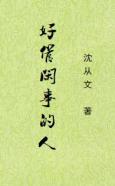 好管閑事的人
沈从文 著